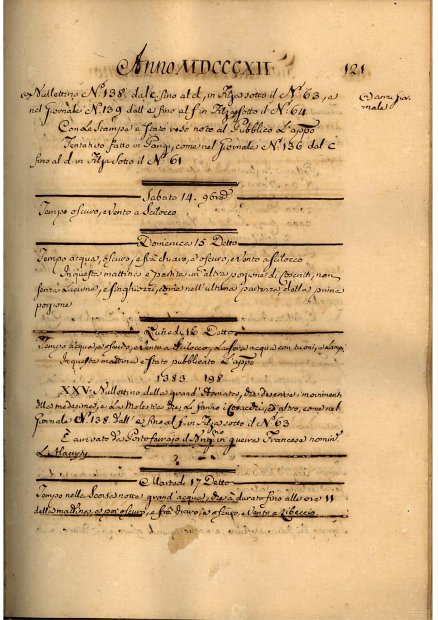 Anno MDCCCXII 121
Bullettino N.º 138. dal c. fino al d, in Filza sotto il N.º 63, e
nel Giornale N.º 139 dall e fino al f in Filza sotto il N.º 64
Con la Stampa è stato reso noto al Pubblico l'appo
Tentativo fatto in Parigi, come nel Giornale N.º 136 dal c
fino al d in Filza sotto il N.º 61
Giornale
Sabato 14. 9bre
Tempo oscuro, e Vento a Scilocco
Domenica 15 Detto
Tempo acqua, oscuro, e frà chiaro, e oscuro, e Vento a Scilocco
In questa mattina è partita un altra porzione di, non
senza lacrime, e singhiozzi, come nell'ultima partenza della prima
porzione
Lunedì 16 Detto
Tempo acqua, e oscuro, e Vento a Scilocco, la sera acqua con tuoni, e lampi
In questa mattina è stato pubblicato l'appo
1383 198
XXV. Bullettino della grand'Armata, che descrive i movimenti
della medesima, e la molestia che le fanno i Cosacchi, ed altro, come nel
Giornale N.º 138. dall e fino al f in Filza sotto il N.º 63
È arrivato da Portoferrajo il in guerra Francese nomin.
Martedì 17 Detto
Tempo nella scorsa notte grand'acqua, che à durato fino alle ore 11
della mattina, e poi oscuro, e frà chiaro, e oscuro, e Vento a Libeccio